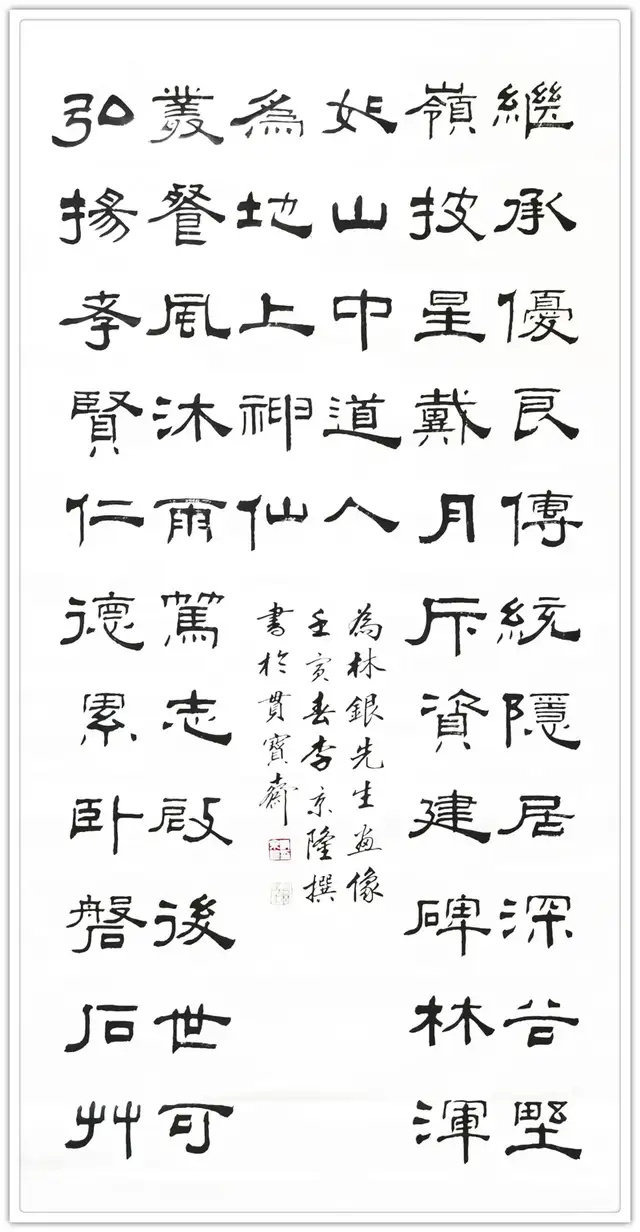 繼承優良傳統隱居深谷野
嶺披星戴月斥資建碑林渾
如山中道人
弘揚孝賢仁德累卧磐石艸
叢餐風沐雨篤志啟後世可
為地上神仙
為林銀先生画像
壬寅春李京隆撰
書於貫寶齋